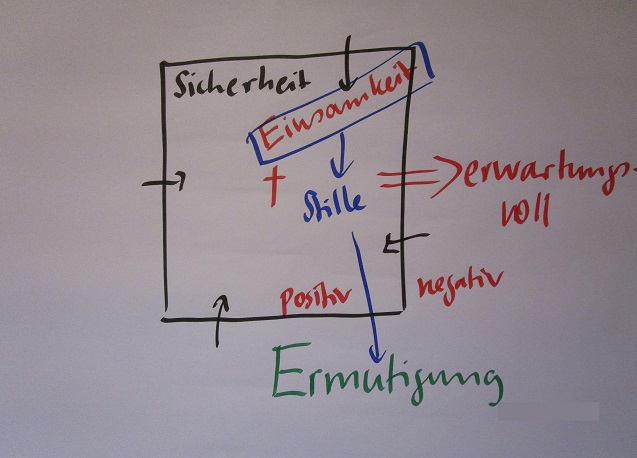 Sicherheit
Einsamkeit
Stille
erwartungs-
voll
positiv
negativ
Ermutigung